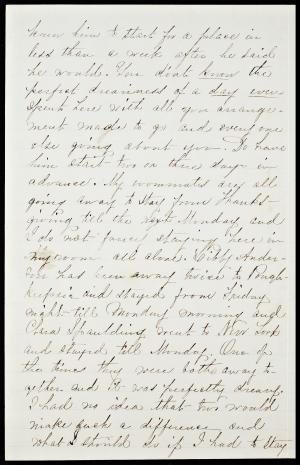 knew him to start for a place in
less than a week after he said
he would. You don't know the
perfect dreariness of a day even
spent here with all your arrange-
ments made to go and every one
else going about you. To have
him start two or three days in
advance. My roommates are all
going away to stay from Thanks-
giving till the next Monday and
I do not fancy staying here in
my room all alone. Libby Ander-
son has been away twice to Pough-
keepsie and stayed from Friday
night till Monday morning and
Clara Spaulding went to New York
and stayed till Monday. One of
the times they were both away to-
gether and it was perfectly dreary.
I had no idea that two would
make such a difference and
what I should do if I had to stay